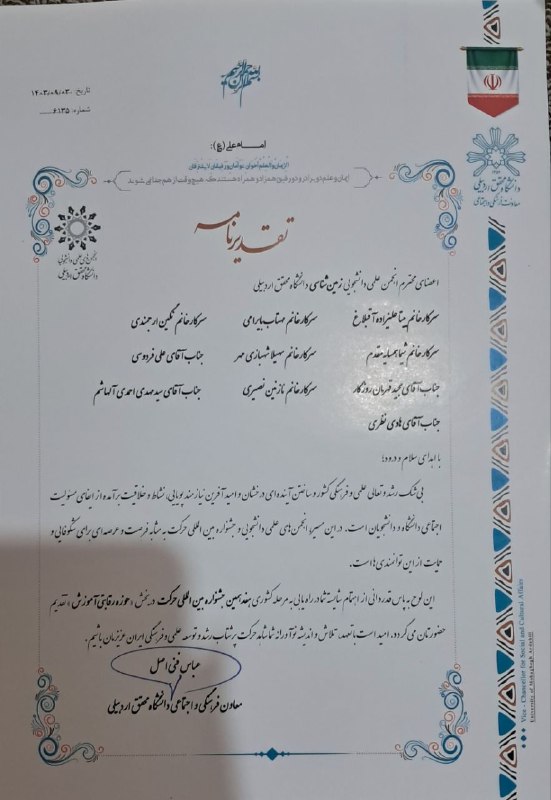 بسم الله الرحمن الرحیم
تاریخ: ۱۴۰۳/۰۹/۰۳
شماره: ۶۱۳۵
امام علی (ع):
ایمان و علم دو برادر و دو رفیق همزاد و همراه هستند که هیچ وقت از هم جدایی شوند
دانشگاه محقق اردبیلی
معاونت فرهنگی و اجتماعی
انجمن‌های علمی دانشجویی
دانشگاه محقق اردبیلی
تقدیرنامه
اعضای محترم انجمن علمی دانشجویی زمین‌شناسی دانشگاه محقق اردبیلی
سرکار خانم بیتا علیزاده آقبلاغ سرکار خانم مهتاب بایرامی سرکار خانم نگین ارجمندی
سرکار خانم شیما همسایه مقدم سرکار خانم سهیلا شهبازی مهر جناب آقای علی فردوسی
جناب آقای مجید قهرمان روزگار سرکار خانم نازنین نصیری جناب آقای سید مهدی احمدی آلهاشم
جناب آقای هادی نظری
با اهدای سلام و درود؛
بی شک رشد و تعالی علمی و فرهنگی کشور و ساختن آینده‌ای درخشان و امید آفرین نیازمند پویایی، نشاط و خلاقیت برآمده از ایفای مسئولیت
اجتماعی دانشگاه و دانشجویان است. در این مسیر، انجمن‌های علمی دانشجویی و جشنواره بین المللی حرکت به مثابه فرصت و عرصه‌ای برای شکوفائی و
حمایت از این توانمندی‌ها است.
این لوح به پاس قدردانی از اهتمام شایسته شما در راه‌یابی به مرحله کشوری هفدهمین جشنواره بین المللی حرکت در بخش «حوزه رقابتی آموزش» تقدیم
حضورتان می گردد. امید است با تعهد، تلاش و اندیشه نوآورانه شما شاهد حرکت پرشتاب رشد و توسعه علمی و فرهنگی ایران عزیزمان باشیم.
عباس فنی اصل
معاون فرهنگی و اجتماعی دانشگاه محقق اردبیلی
Vice - Chancellor for Social and Cultural Affairs
University of Mohaghegh Ardabili